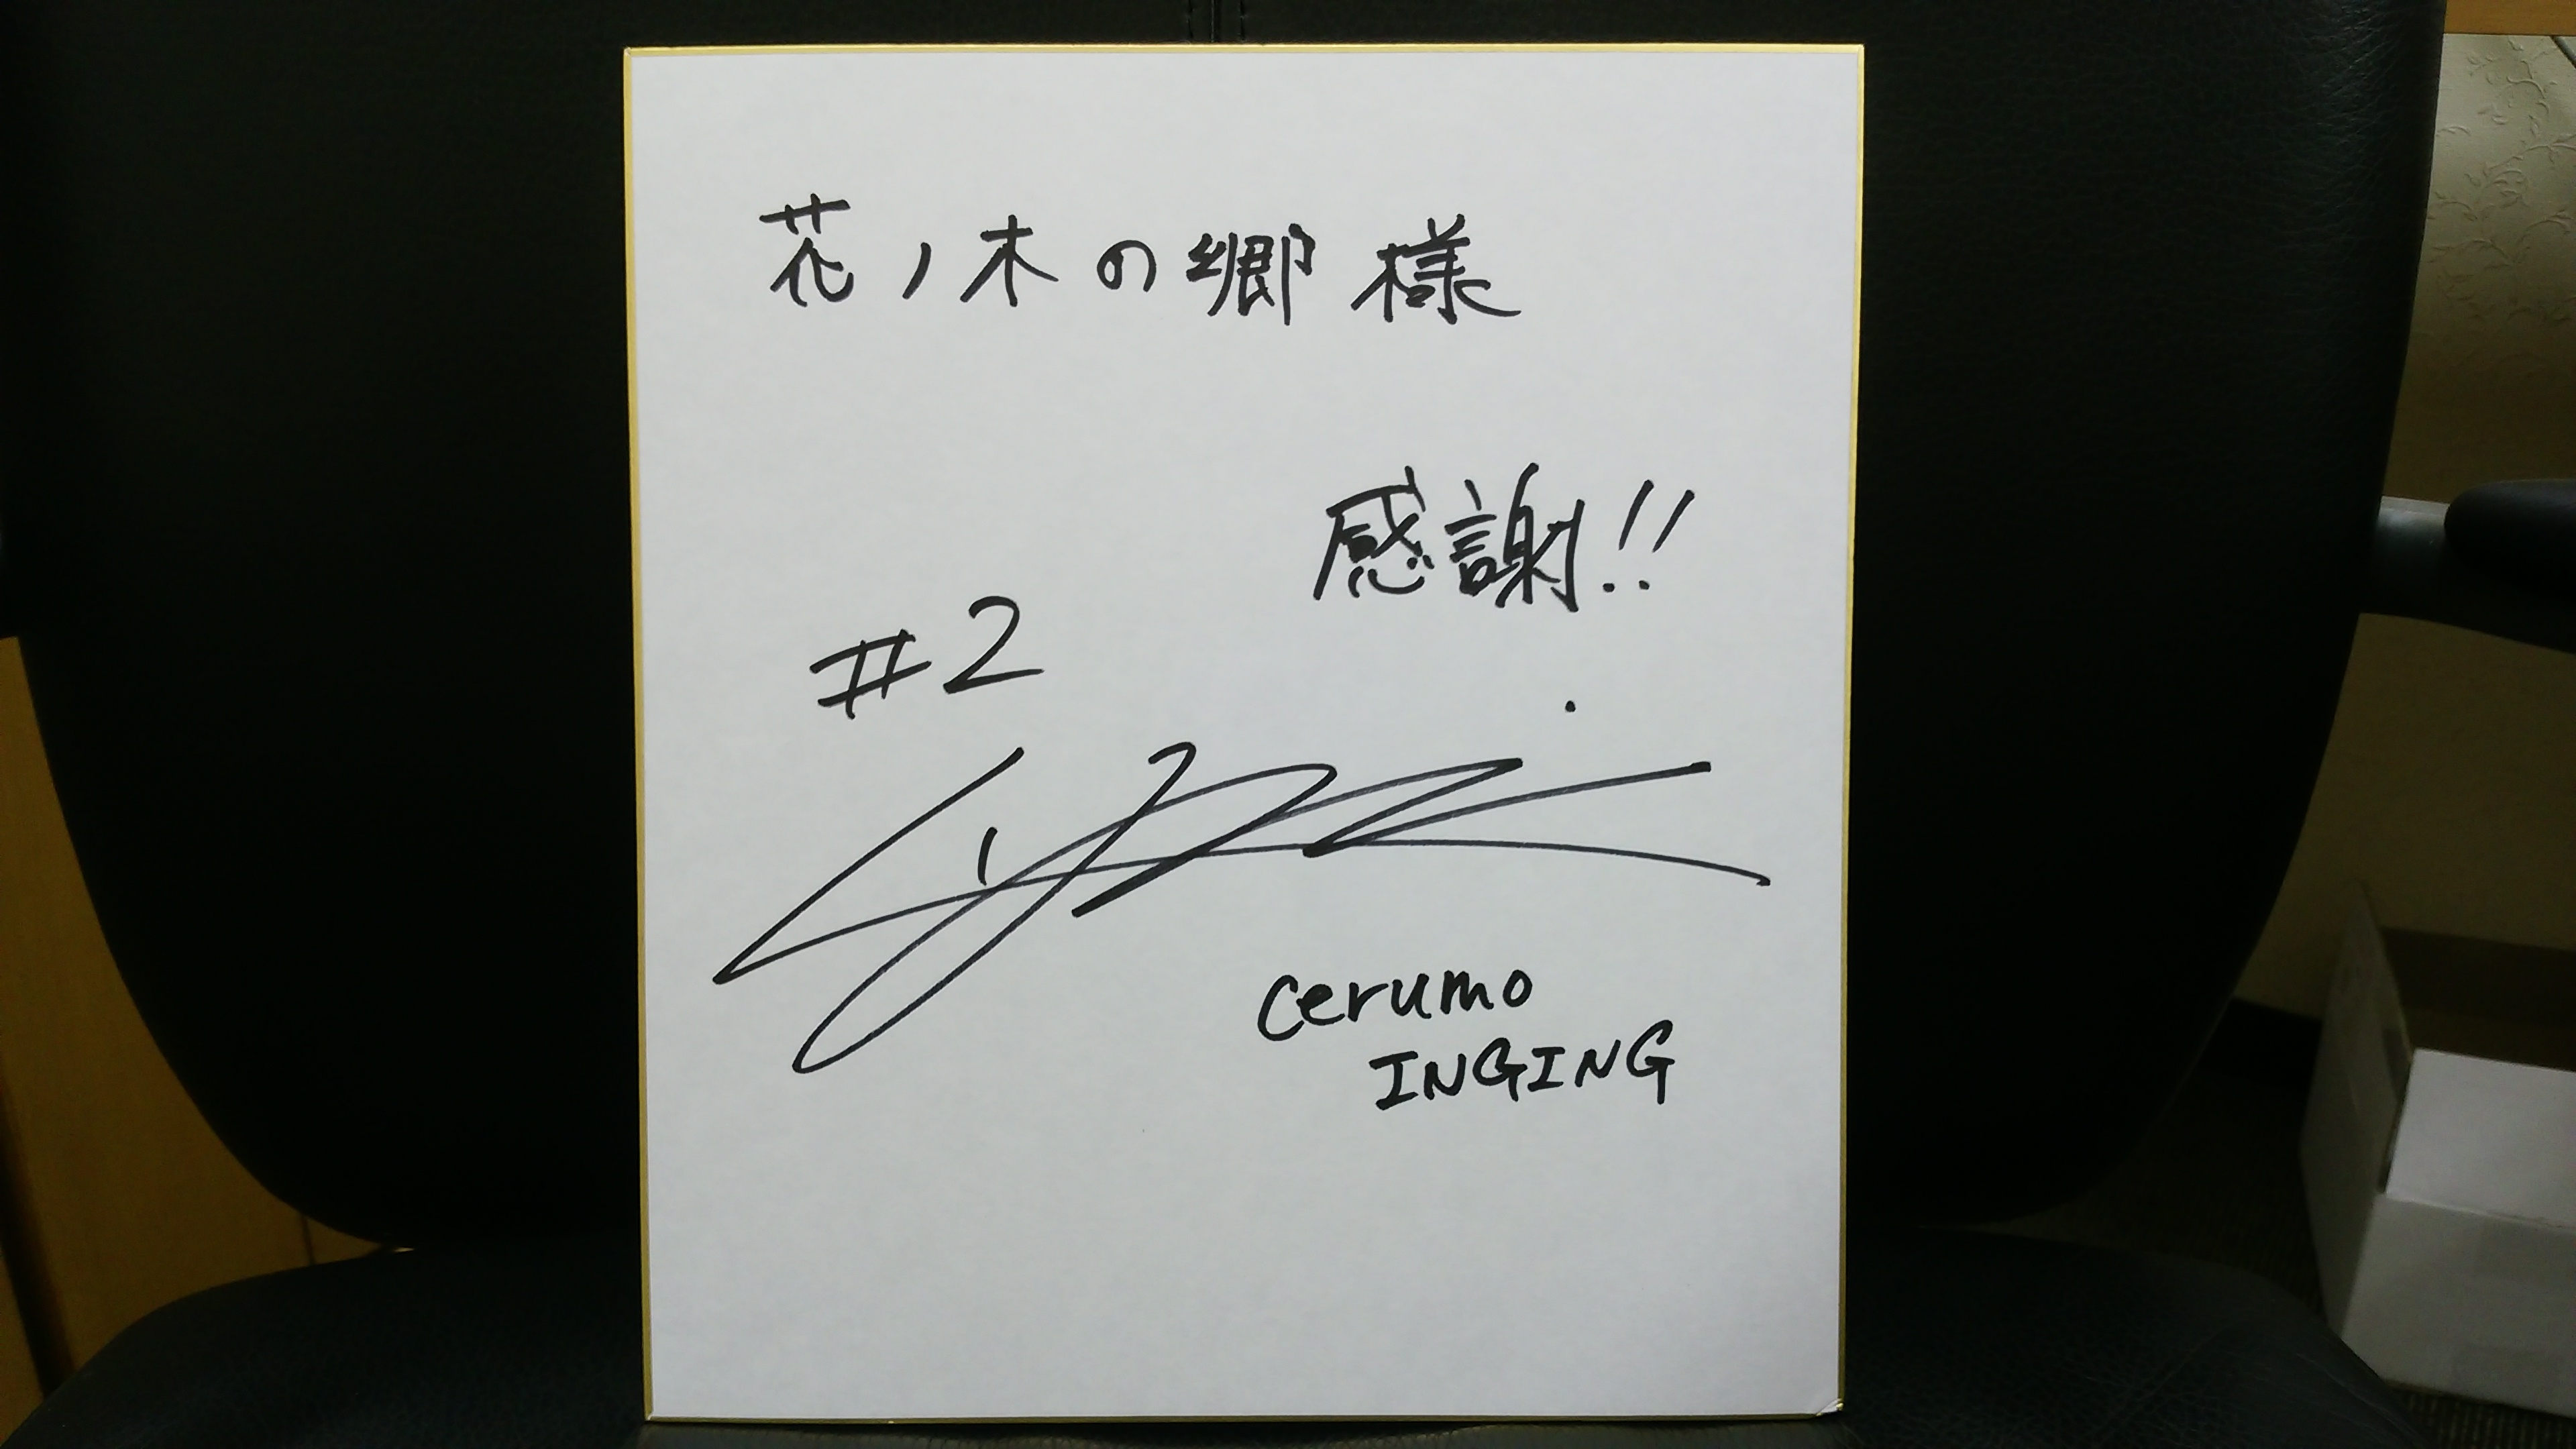 花ノ木の郷様
感謝!!
#2
cerumo
INGING